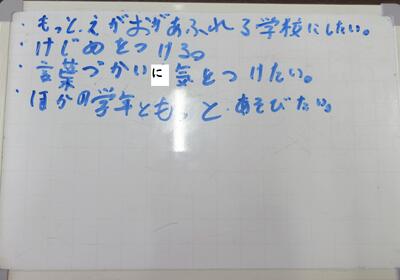 ・もっと、えがおがあふれる学校にしたい。
・けじめをつける。
・言葉づかいに気をつけたい。
・ほかの学年ともっと、あそびたい。